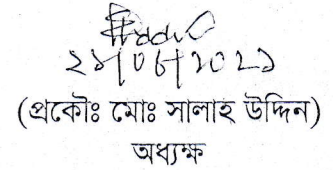 ২১/০৬/২০২১
(প্রকৌঃ মোঃ সালাহ উদ্দিন)
অধ্যক্ষ